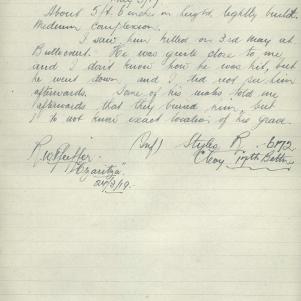 About 5 ft. 6 inch in height, lightly built.
Medium complexion.
I saw him killed on 3rd May at
Bullecourt. He was quite close to me
and I don't know how he was hit, but
he went down and I did not see him
afterwards. Some of his mates told me
afterwards that they buried him, but
I do not know exact location of his grave.
Inf/ Styles R. 6172
R. W. Pfeiffer. C Coy Battn
24/3/19.